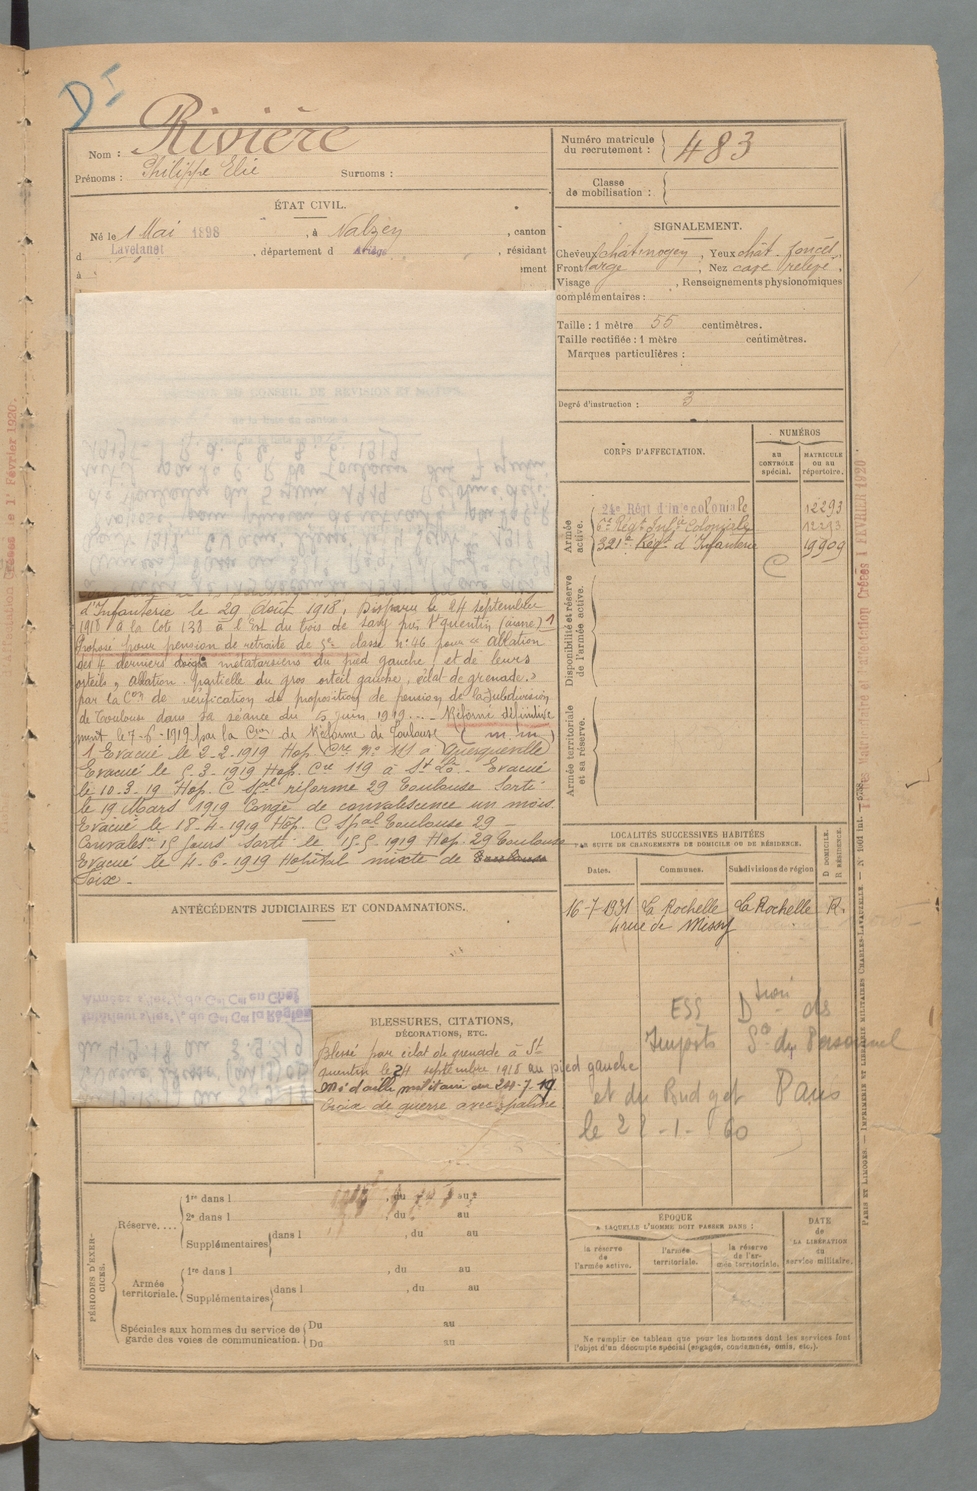 D I
Rivière
Nom :
Prénoms : Philippe Elie Surnoms :
Numéro matricule du recrutement : 483
Classe de mobilisation :
ÉTAT CIVIL.
Né le 1 Mai 1898, à Nalzen, canton
d Lavelanet, département d Ariège, résidant
à
SIGNALEMENT.
Cheveux chât moyen, Yeux chât. foncé,
Front large, Nez cave relevé.
Visage , Renseignements physionomiques
complémentaires :
Taille : 1 mètre 55 centimètres.
Taille rectifiée : 1 mètre centimètres.
Marques particulières :
Degré d'instruction : 3
CORPS D'AFFECTATION.
NUMÉROS
AU CONTRÔLE spécial.
MATRICULE ou au répertoire.
Armée active.
24e Régt d'infie coloniale 12293
6e Régt Infie Coloniale 12213
321e Régt d'Infanterie 19909
C
Disponibilité et réserve de l'armée active.
Armée territoriale et sa réserve.
d'Infanterie le 29 Août 1918, Disparu le 24 septembre
1918 à la cote 138 à l'Est du bois de Savy près St quentin (aisne) 1
Proposé pour pension de retraite de 5e classe n° 46 pour "Ablation
des 4 derniers doigts métatarsiens du pied gauche, et de leurs
orteils, ablation partielle du gros orteil gauche, éclat de grenade."
par la Con de vérification des propositions de pension de la Subdivision
de Toulouse dans sa séance du 5 juin 1919. Réformé définitive
ment le 7-6-1919 par la Con de Réforme de Toulouse (m.m)
1 Evacué le 2-2-1919 Hop. Cre n° 111 à Querqueville
Evacué le 5.3-1919 Hop. Cre 119 à St Lô. Evacué
le 10.3.19 Hop. C Spal réforme 29 Toulouse Sorti
le 19 Mars 1919 Congé de convalescence un mois.
Evacué le 18-4-1919 Hop. C Spal Toulouse 29 -
Convalesce 15 jours Sorti le 15-5-1919 Hop. 29 Toulouse
Evacué le 4-6-1919 Hôpital mixte de Toulouse
Foix -
ANTÉCÉDENTS JUDICIAIRES ET CONDAMNATIONS.
LOCALITÉS SUCCESSIVES HABITÉES
PAR SUITE DE CHANGEMENTS DE DOMICILE OU DE RÉSIDENCE.
D. DOMICILE. R. RÉSIDENCE.
Dates. Communes. Subdivisions de région
16-7-1931 La Rochelle La Rochelle R.
4 rue de Missy
ESS Dtion des
Impôts Son du Personnel
et du Budget Paris
le 22-1-60
BLESSURES, CITATIONS,
DÉCORATIONS, ETC.
Blessé par éclat de grenade à St
quentin le 24 septembre 1918 au pied gauche
Médaille militaire du 24-7-19.
Croix de guerre avec palme
PÉRIODES D'EXERCICES.
Réserve....
1re dans l , du au
2e dans l , du au
Supplémentaires dans l , du au
Armée territoriale.
1re dans l , du au
Supplémentaires dans l , du au
Spéciales aux hommes du service de garde des voies de communication.
Du au
Du au
ÉPOQUE
A LAQUELLE L'HOMME DOIT PASSER DANS :
la réserve de l'armée active.
l'armée territoriale.
la réserve de l'armée territoriale.
DATE de LA LIBÉRATION du service militaire.
Ne remplir ce tableau que pour les hommes dont les services font
l'objet d'un décompte spécial (engagés, condamnés, omis, etc.).
PARIS ET LIMOGES. — IMPRIMERIE ET LIBRAIRIE MILITAIRES CHARLES-LAVAUZELLE.